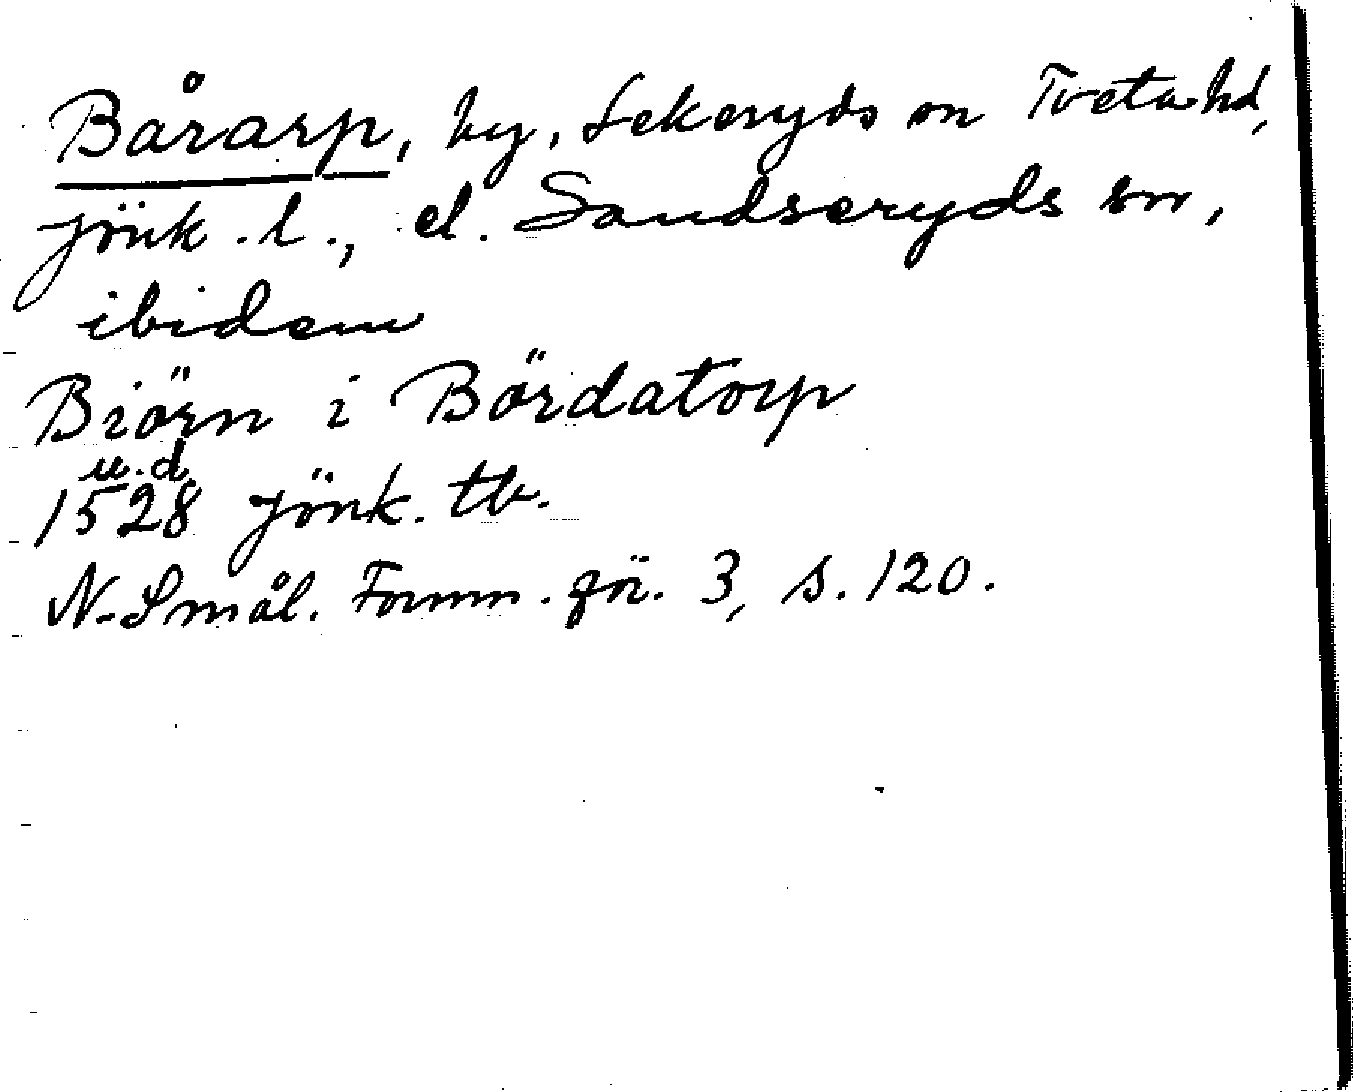 Bårarp, by, Sekeryds sn Tveta hd,
Jönk. l., el. Sandseryds sn,
ibidem
Biörn i Bördatorp
u.d.
1528 Jönk. tb.
N. Smål. Fornm. för. 3, s. 120.